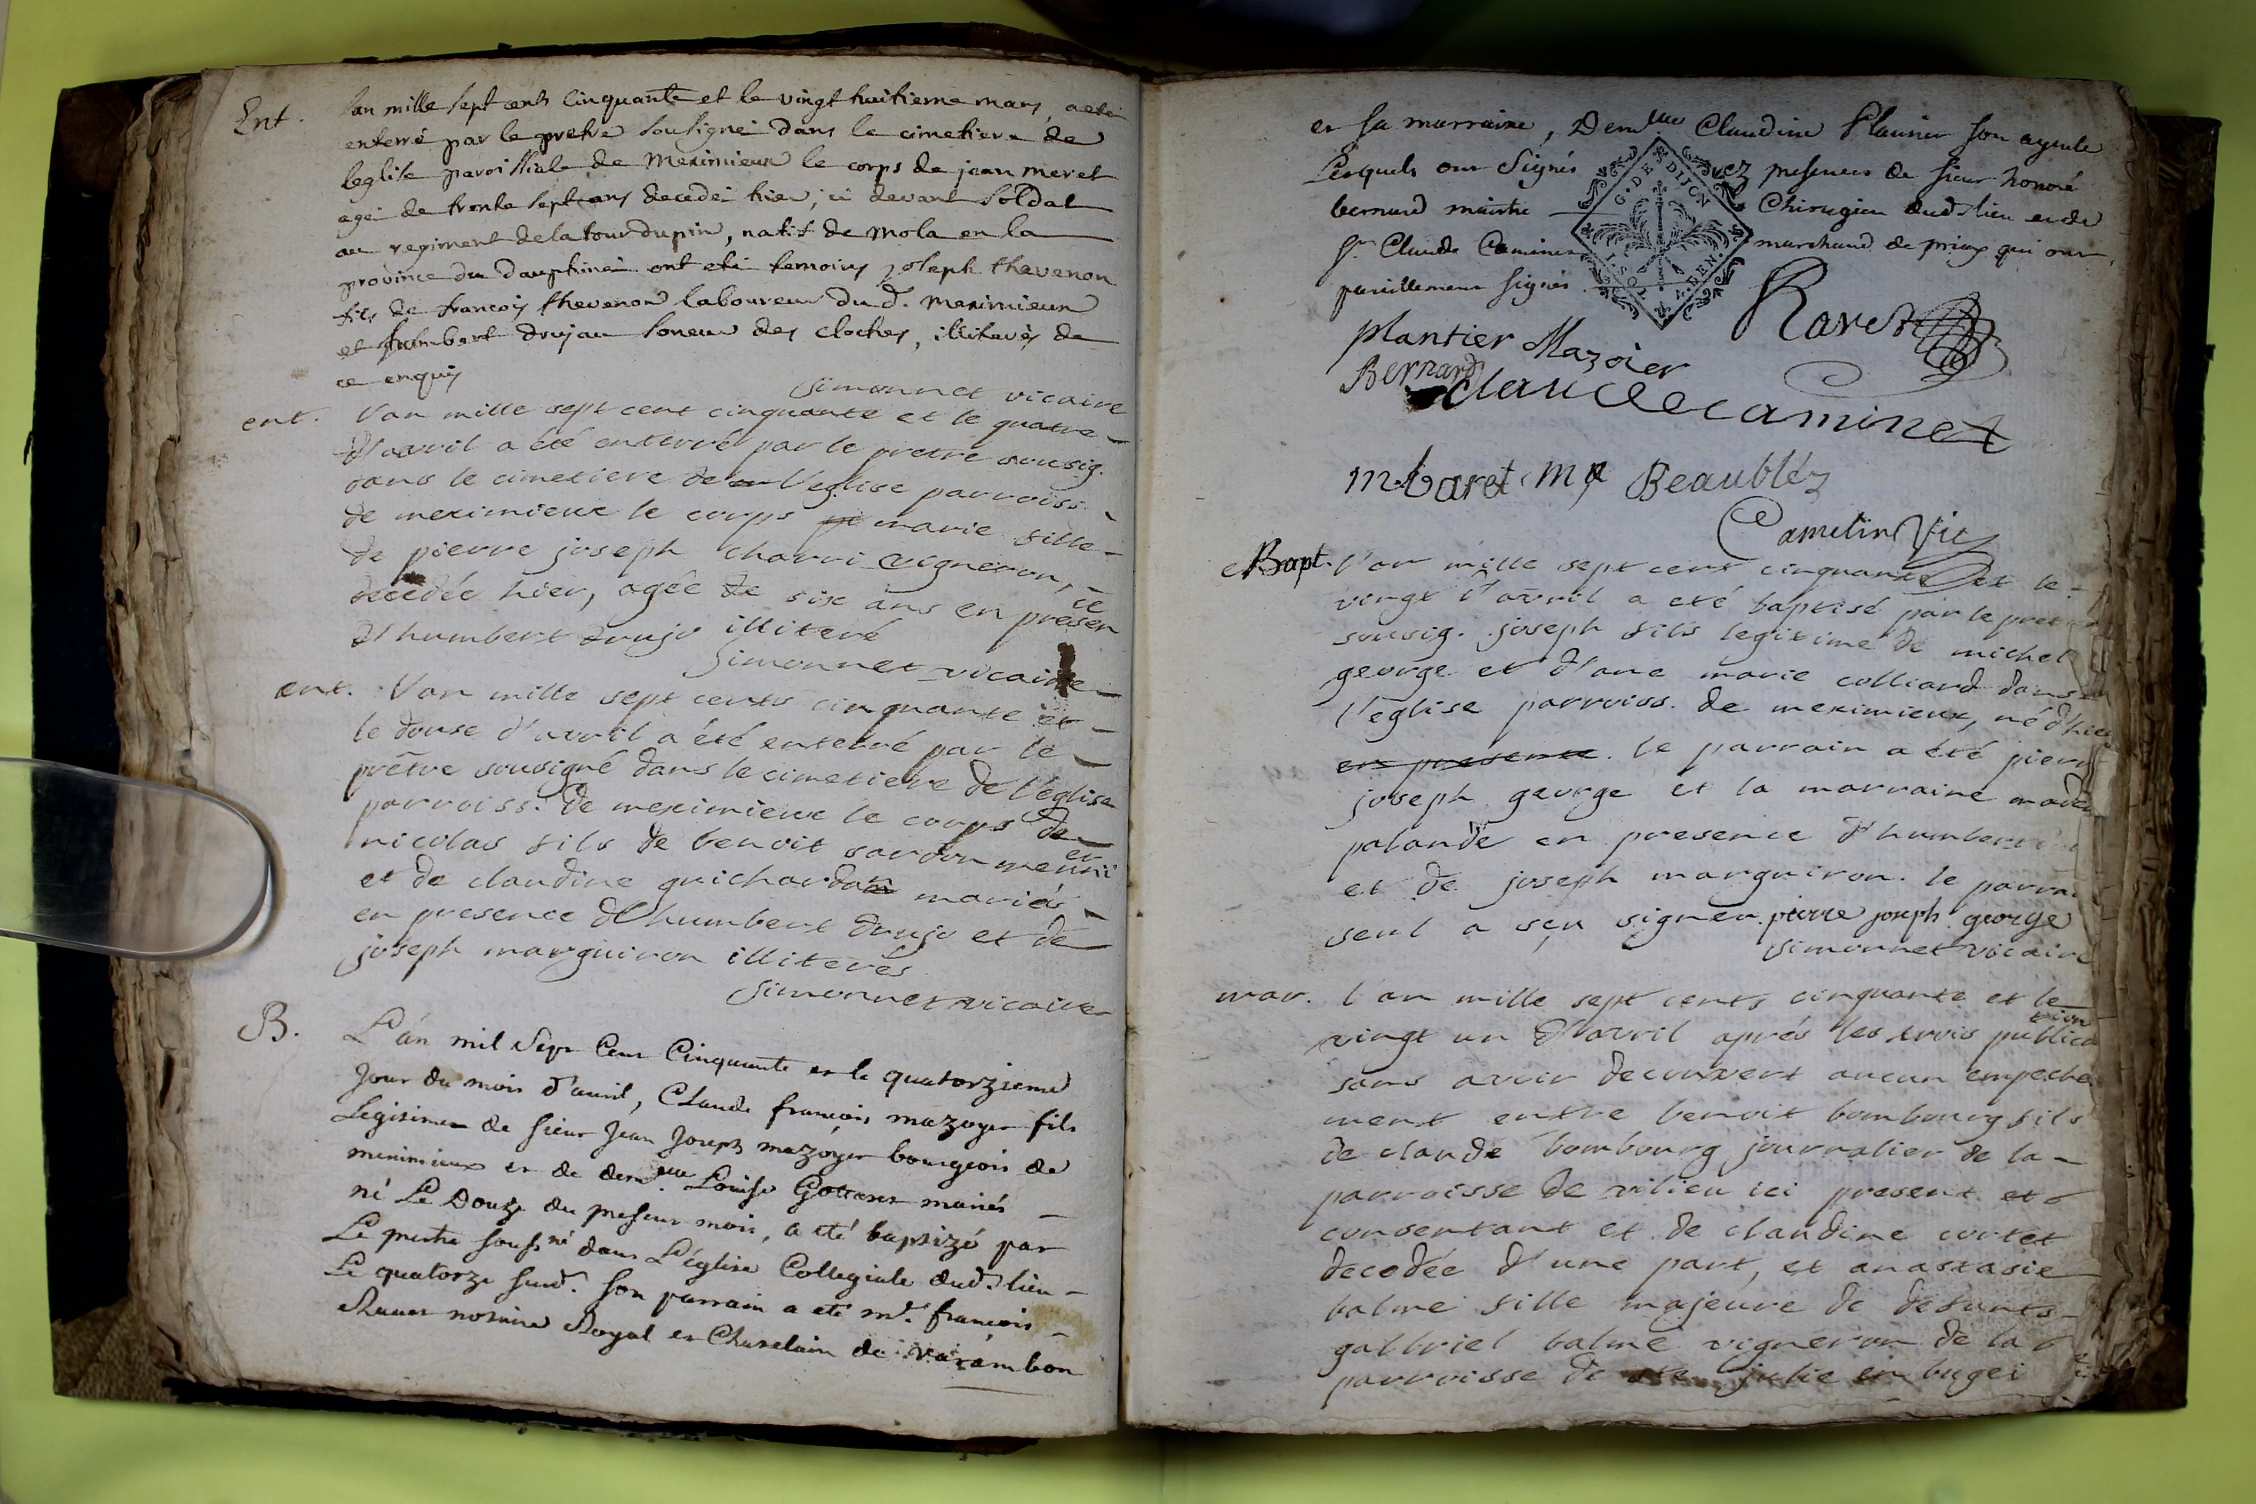 Ent. l'an mille sept cents cinquante et le vingt huitieme mars, a eté
enterré par le pretre sousigné dans le cimetiere de
leglise paroissiale de meximieux le corps de jean meret
agé de trente sept ans decedé hier, ci devant soldat
au regiment delatourdupin, natif de mola en la
province du dauphiné ont eté temoins joseph thevenon
fils de francois thevenon laboureur du d. meximieux
et humbert drujau soneur des cloches, illiterés de
ce enquis
simonnet vicaire
ent. l'an mille sept cent cinquante et le quatre
d'avril a été enterré par le pretre sousig.
dans le cimetiere de l'eglise parroiss.
de meximieux le corps marie fille
de pierre joseph charvi vigneron,
decedée hier, agée de six ans en presence
d'humbert drujo illiteré
simonnet vicaire
ent. l'an mille sept cents cinquante et
le douse d'avril a été enterré par le
prêtre sousigné dans le cimetiere de l'église
parroiss. de meximieux le corps de
nicolas fils de benoit sardon meunier
et de claudine guichardon mariés
en presence d'humbert drujo et de
joseph marguiron illiterés
simonnet vicaire
B. L'an mil Sept Cent Cinquante et le quatorzieme
Jour du mois d'avril, Claude françois mazoyer fils
Legitime de sieur Jean Joseph mazoyer bourgeois de
meximieux et de dem.lle Louise mariés
né Le Douze du present mois, a eté baptizé par
Le pretre souss.né dans L'église Collegiale dud. lieu
Le quatorze susd. son parrain a eté m.e françois
Ravet notaire Royal et Chatelain de varambon
et sa marraine, Dem.lle Claudine Plantier son ayeule
Lesquels ont Signés avez presences de sieur honoré
bernard maistre Chirugien dud. lieu et de
S.r Claude Caminet marchand de priay qui ont
pareillement signés
G. DE DIJON
Ravet
plantier Mazoier
Bernard
claude caminet
m baret Beaublez
Camelin Vic
Bapt. l'an mille sept cent cinquante et le
vingt d'avril a eté baptisé par le pretre
sousig. joseph fils legitime de michel
george et d'ane marie colliard dans
l'église parroiss. de meximieux, né d'hier
en presence. le parrain a été pierre
joseph george et la marraine
palande en presence d'humbert
et de joseph marguiron. le parrain
seul a sçu signer. pierre joseph george
simonnet vicaire
mar. l'an mille sept cents cinquante et le
vingt un d'avril aprés les trois publication
sans avoir decouvert aucun empeche
ment entre benoit bombourg fils
de claude bombourg journalier de la
parroisse de vilieu ici present et
consentant et de claudine cortet
decedée d'une part, et anastasie
balme fille majeure de defunts
gabriel balme vigneron de la
parroisse de ste julie en bugei